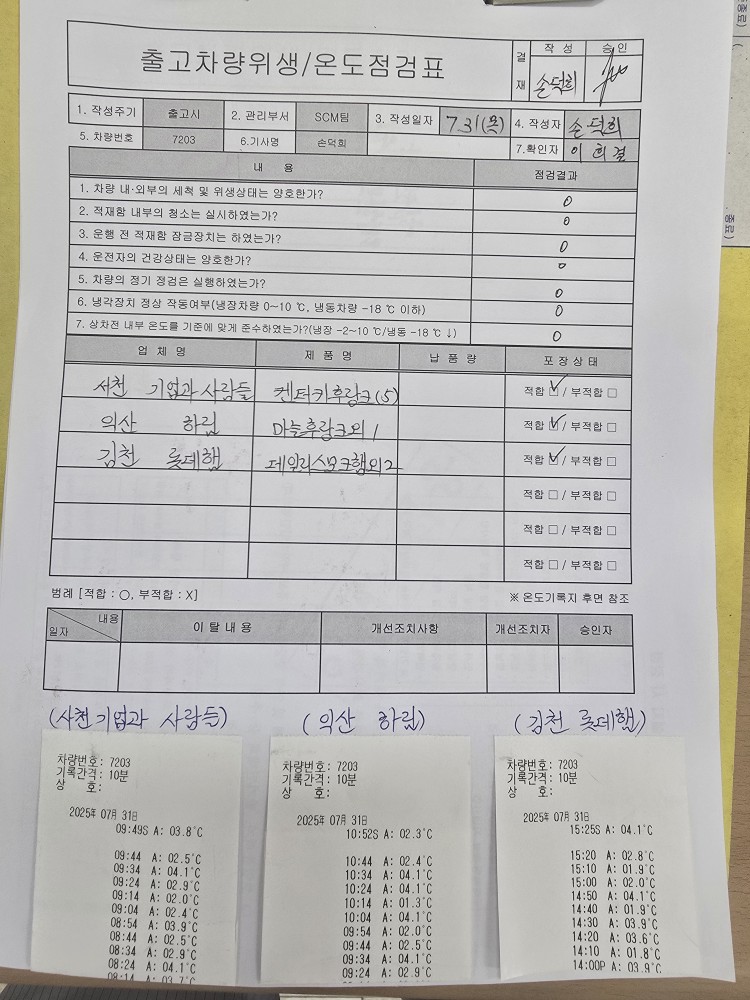 출고차량위생/온도점검표
결재
작 성
승 인
손덕희
1. 작성주기 출고시 2. 관리부서 SCM팀 3. 작성일자 7.31(목) 4. 작성자 손덕희
5. 차량번호 7203 6.기사명 손덕희 7.확인자 이희결
내 용 점검결과
1. 차량 내·외부의 세척 및 위생상태는 양호한가? O
2. 적재함 내부의 청소는 실시하였는가? O
3. 운행 전 적재함 잠금장치는 하였는가? O
4. 운전자의 건강상태는 양호한가? O
5. 차량의 정기 점검은 실행하였는가? O
6. 냉각장치 정상 작동여부(냉장차량 0~10 ℃, 냉동차량 -18 ℃ 이하) O
7. 상차전 내부 온도를 기준에 맞게 준수하였는가?(냉장 -2~10 ℃/냉동 -18 ℃ ↓) O
업 체 명 제 품 명 납 품 량 포 장 상 태
사천 기업과사람들 켄터키후랑크(5) 적합 ☑ / 부적합 □
익산 하림 마늘후랑크외 1 적합 ☑ / 부적합 □
김천 롯데햄 데일리스모크햄외2 적합 ☑ / 부적합 □
적합 □ / 부적합 □
적합 □ / 부적합 □
적합 □ / 부적합 □
범례 [적합 : ○, 부적합 : X] ※ 온도기록지 후면 참조
내용
일자 이 탈 내 용 개선조치사항 개선조치자 승인자
(사천기업과 사람들)
차량번호: 7203
기록간격: 10분
상 호:
2025年 07月 31日
09:49S A: 03.8°C
09:44 A: 02.5°C
09:34 A: 04.1°C
09:24 A: 02.9°C
09:14 A: 02.0°C
09:04 A: 02.4°C
08:54 A: 03.9°C
08:44 A: 02.5°C
08:34 A: 02.9°C
08:24 A: 04.1°C
08:14 A: 03.7°C
(익산 하림)
차량번호: 7203
기록간격: 10분
상 호:
2025年 07月 31日
10:52S A: 02.3°C
10:44 A: 02.4°C
10:34 A: 04.1°C
10:24 A: 04.1°C
10:14 A: 01.3°C
10:04 A: 04.1°C
09:54 A: 02.0°C
09:44 A: 02.5°C
09:34 A: 04.1°C
09:24 A: 02.9°C
(김천 롯데햄)
차량번호: 7203
기록간격: 10분
상 호:
2025年 07月 31日
15:25S A: 04.1°C
15:20 A: 02.8°C
15:10 A: 01.9°C
15:00 A: 02.0°C
14:50 A: 04.1°C
14:40 A: 01.9°C
14:30 A: 03.9°C
14:20 A: 03.6°C
14:10 A: 01.8°C
14:00P A: 03.9°C